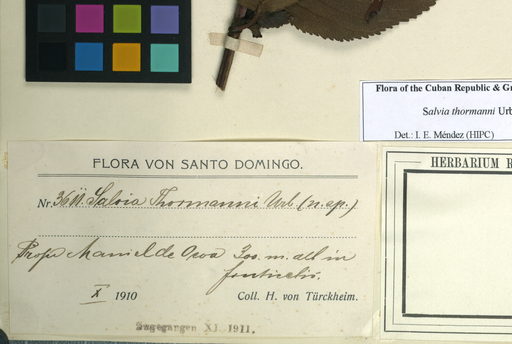 Flora of the Cuban Republic & Gr
Salvia thormanni Urb
Det.: I. E. Méndez (HIPC)
FLORA VON SANTO DOMINGO.
HERBARIUM B
Nr. Salvia Thormanni Urb (n. sp.)
Prope Maniel de Ocoa 300 m. alt in
fruticetis.
X 1910
Coll. H. von Türckheim.
Zugegangen XI. 1911.